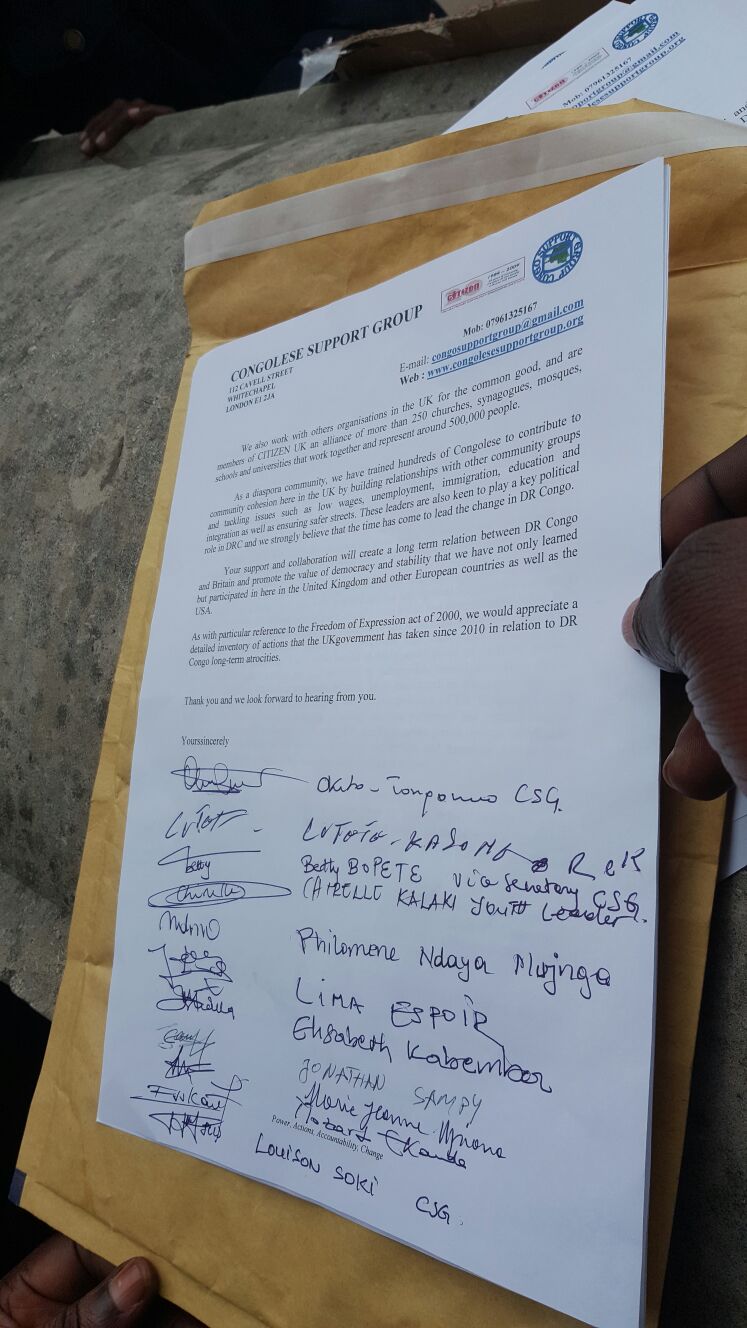 Mob: 07961325167
CONGO SUPPORT GROUP
CITIZEN
1989 - 2009
CONGOLESE SUPPORT GROUP
112 CAVELL STREET
WHITECHAPEL
LONDON E1 2JA
Mob: 07961325167
E-mail: congosupportgroup@gmail.com
Web : www.congolesesupportgroup.org
We also work with others organisations in the UK for the common good, and are
members of CITIZEN UK an alliance of more than 250 churches, synagogues, mosques,
schools and universities that work together and represent around 500,000 people.
As a diaspora community, we have trained hundreds of Congolese to contribute to
community cohesion here in the UK by building relationships with other community groups
and tackling issues such as low wages, unemployment, immigration, education and
integration as well as ensuring safer streets. These leaders are also keen to play a key political
role in DRC and we strongly believe that the time has come to lead the change in DR Congo.
Your support and collaboration will create a long term relation between DR Congo
and Britain and promote the value of democracy and stability that we have not only learned
but participated in here in the United Kingdom and other European countries as well as the
USA.
As with particular reference to the Freedom of Expression act of 2000, we would appreciate a
detailed inventory of actions that the UKgovernment has taken since 2010 in relation to DR
Congo long-term atrocities.
Thank you and we look forward to hearing from you.
Yourssincerely
Okito - CSG.
LUTOTO - KASONGO
betty Betty BOPETE CSG
KALAKI Youth Leader.
Philomene Ndaya Mujnga
LIMA ESPOIR
Elisabeth
JONATHAN SAMPY
Marie Jeanne
Power, Actions, Accountability, Change
LOUISON SOKI CSG.